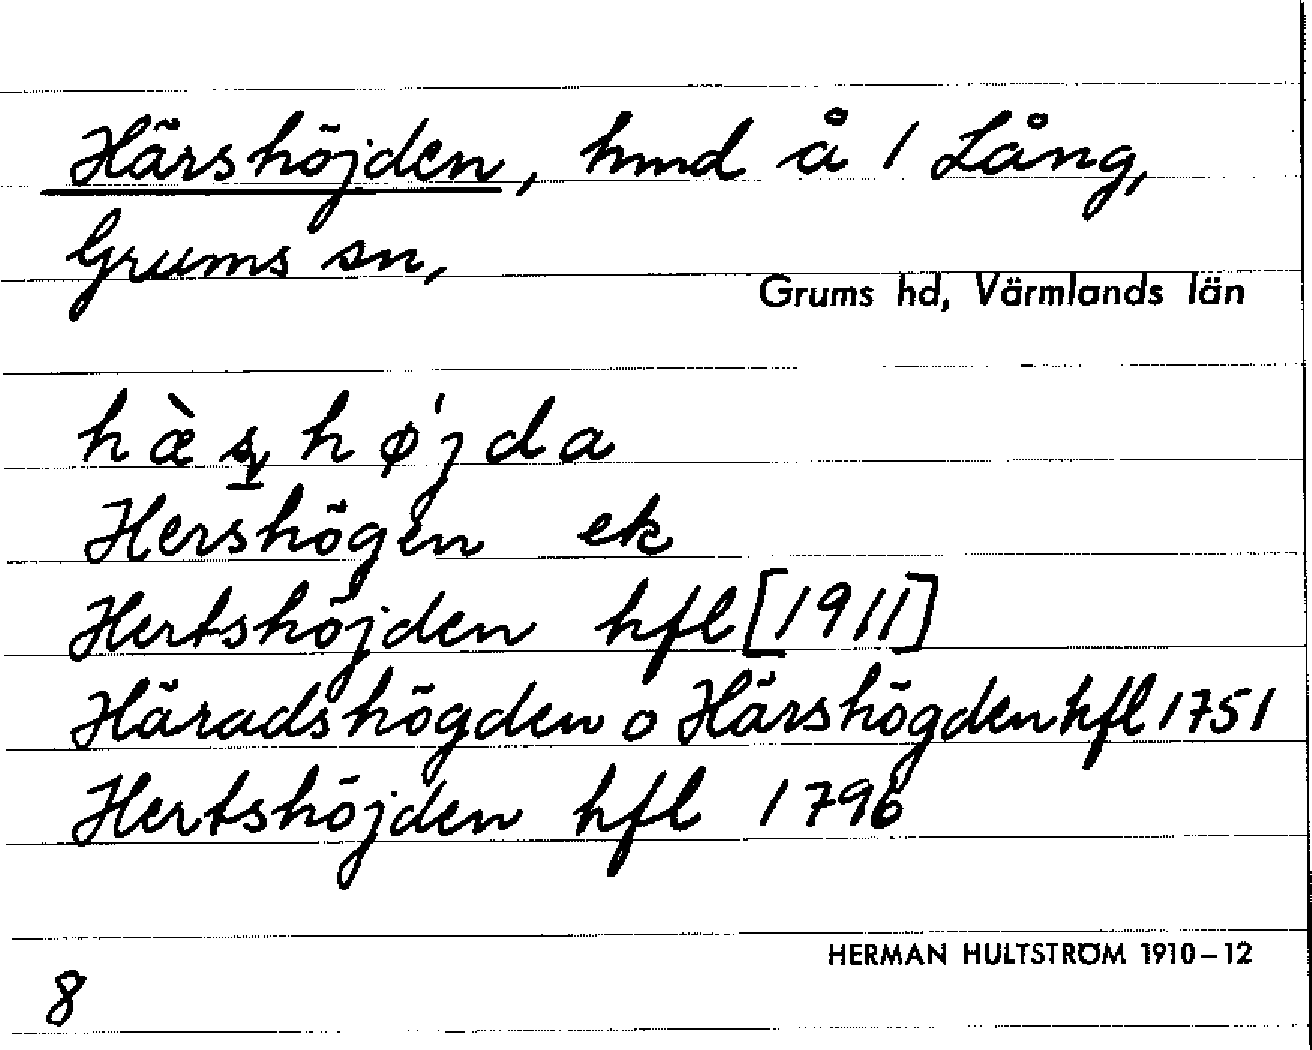 Härshöjden, hmd å 1 Lång,
Grums sn,
Grums hd, Värmlands län
hæ̀ʂhø̍jda
Hershögen ek
Hertshöjden hfl [1911]
Häradshögden o Härshögden hfl 1751
Hertshöjden hfl 1796
HERMAN HULTSTRÖM 1910–12
8